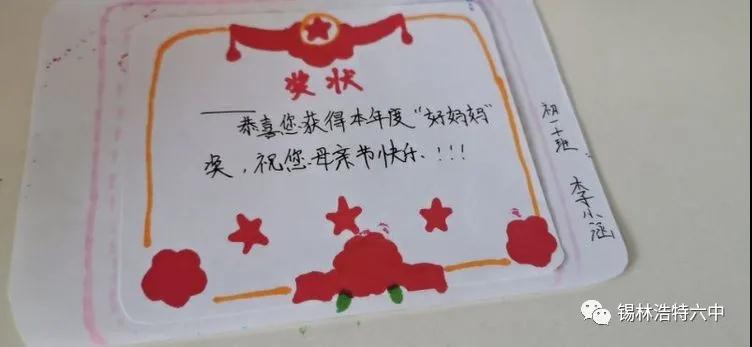 奖状
恭喜您获得本年度“好妈妈”
奖,祝您母亲节快乐.!!!
初一十班.
李小涵
锡林浩特六中